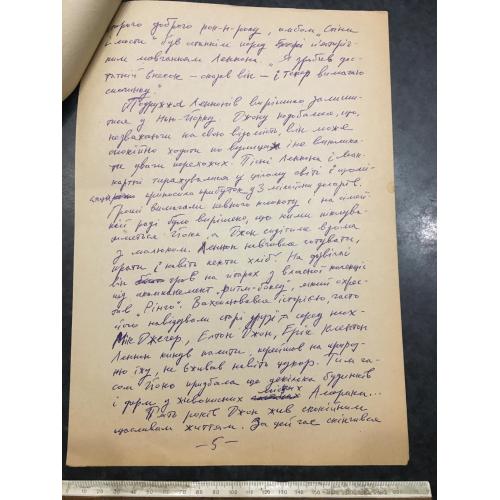 старого доброго рок-н-ролу, альбом „Стіни
і мости" був останнім перед п'ятиріч-
ним мовчанням Леннона. „Я зробив дос-
татній внесок – сказав він – і тепер вимагаю
спочинку".
Подружжя Леннонів вирішило залиши-
тися у Нью-Йорку. Джону подобалося, що,
незважаючи на свою відомість, він може
спокійно ходити по вулицях і не виклика-
ти уваги перехожих. Пісні Леннона і Мак-
картні тиражувалися у цілому світі і щомі-
сяця приносили прибуток у 3 мільйони доларів.
Гроші вимагали певного клопоту і на сімей-
ній раді було вирішено, що ними піклува-
тиметься Йоко, а Джон сидітиме вдома
з малюком. Леннон навчився готувати,
прати і навіть пекти хліб. На дозвіллі
він грав на гітарах з власної колекції
під акомпанемент „ритм-боксу", який охрес-
тив „Рінго". Захоплювався історією, часто
його навідували старі друзі – серед них –
Мік Джегер, Елтон Джон, Ерік Клептон
Леннон кинув палити, перейшов на природ-
ню їжу, не вживав навіть цукор. Тим ча-
сом Йоко придбала ще декілька будинків
і ферм у живописних місцях Америки...
П'ять років Джон жив спокійним
щасливим життям. За цей час скінчився
– 5 –